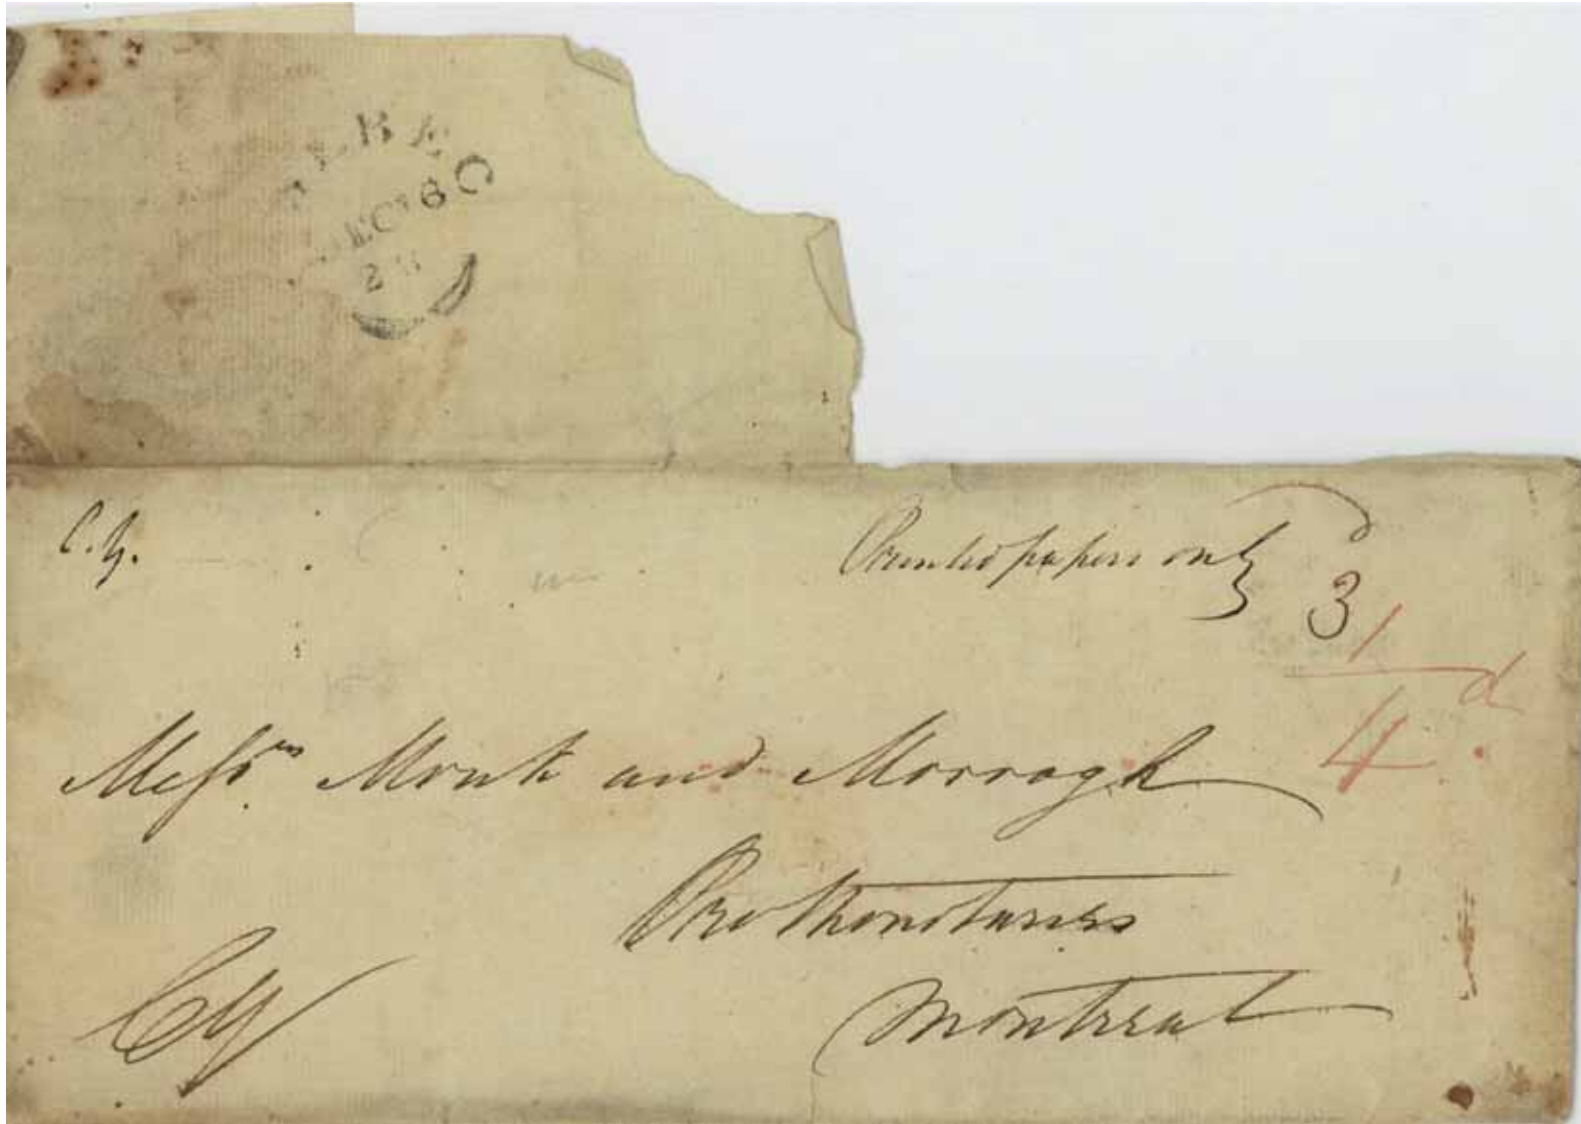 QUEBEC
DEC 6
C.Y. Printed papers only
3
1/4 d
Messrs Monk and Morrogh
Prothonotaries
Montreal
CY